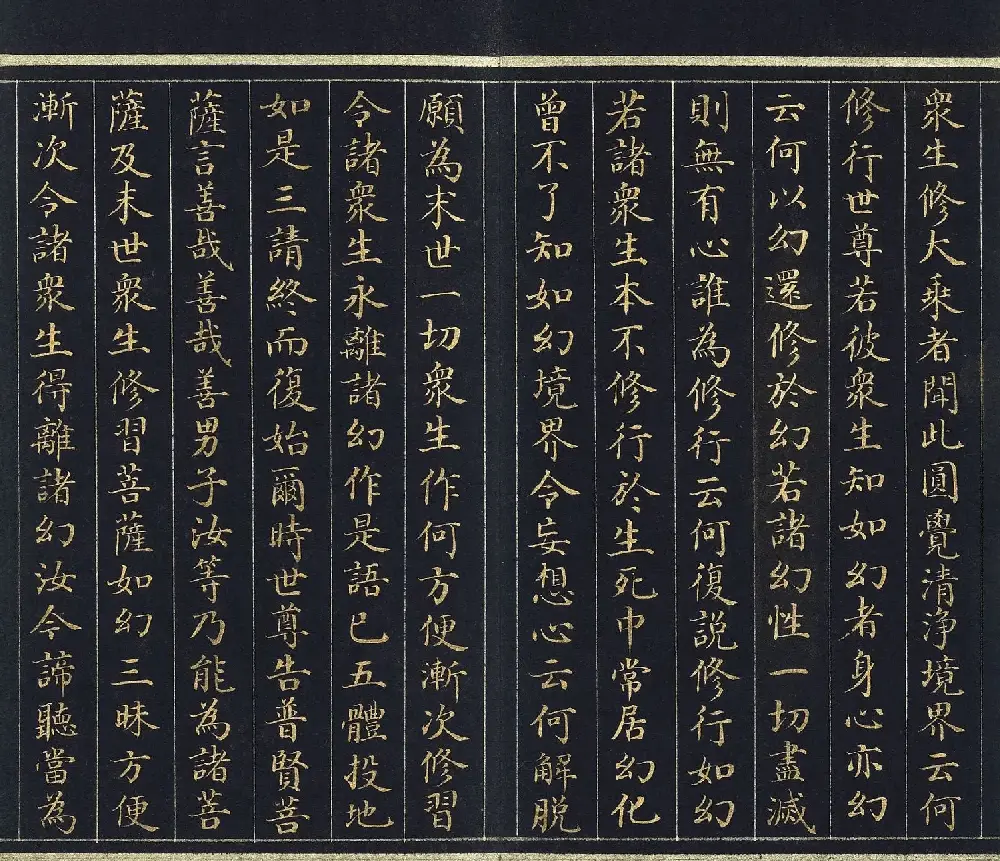 衆生修大乘者聞此圓覺清淨境界云何
修行世尊若彼衆生知如幻者身心亦幻
云何以幻還修於幻若諸幻性一切盡滅
則無有心誰為修行云何復說修行如幻
若諸衆生本不修行於生死中常居幻化
曾不了知如幻境界令妄想心云何解脱
願為末世一切衆生作何方便漸次修習
令諸衆生永離諸幻作是語已五體投地
如是三請終而復始爾時世尊告普賢菩
薩言善哉善哉善男子汝等乃能為諸菩
薩及末世衆生修習菩薩如幻三昧方便
漸次令諸衆生得離諸幻汝今諦聽當為